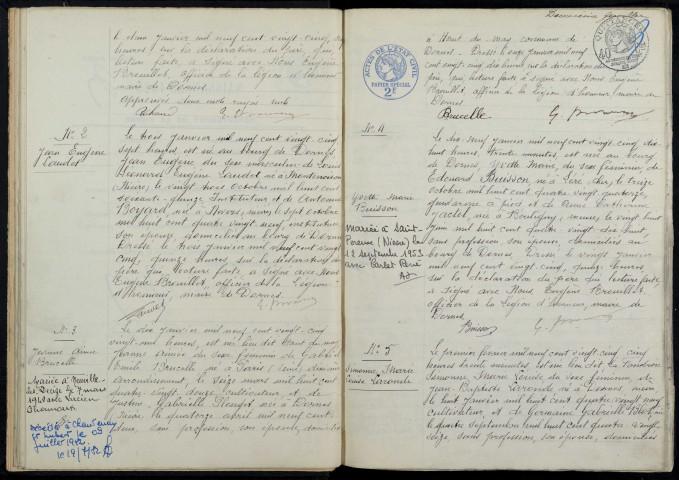 le deux janvier mil neuf cent vingt cinq,
heures, sur la déclaration du père, qui,
lecture faite a signé avec Nous Eugène
Breuillot, officier de la Légion d'honneur
maire de Dornes
N° 2
Jean Eugène
Laudet
Le trois janvier mil neuf cent vingt cinq
sept heures, est né au bourg de Dornes
Jean Eugène du sexe masculin de Louis
Laudet né à Montenoison
(Nièvre) le vingt trois Octobre mil huit cent
soixante quinze Instituteur et de Antoinette
Boyard, née à Nevers, le sept octobre
mil huit cent quatre vingt neuf, institutrice
son épouse domiciliés au bourg de Dornes
Dressé le trois janvier mil neuf cent vingt
cinq, quinze heures, sur la déclaration du
père qui lecture faite, a signé avec Nous
Eugène Breuillot, officier de la Légion
d'honneur, maire de Dornes.
N° 3
Jeanne
Brucelle
Mariée à Neuville
les Decize le 7 mars
1948 avec Lucien
décédé à Chantenay
St Imbert le 03
juillet 1982.
le 19/7/82
Le dix janvier mil neuf cent vingt cinq
vingt une heures, est née au lieu dit Haut du mas
Jeanne du sexe féminin de Gabriel
Emile Brucelle né à Paris
arrondissement, le seize mars mil huit cent
quatre vingt douze cultivateur, et de
Gabrielle née à Dornes
Nièvre, le quatorze avril mil neuf cent
deux, sans profession, son épouse, domiciliés
à Haut du mas, commune de
Dornes. Dressé le onze janvier mil neuf
cent vingt cinq dix heures sur la déclaration du
père, qui, lecture faite a signé avec Nous Eugène
Breuillot, officier de la Légion d'honneur, maire de
Dornes
Brucelle
ACTES DE L'ÉTAT CIVIL
PAPIER SPÉCIAL
2F
N° 4
Yvette Marie
Buisson
Mariée à Saint-
(Nièvre) le
12 septembre 1953
avec Perlet René
Le dix neuf janvier mil neuf cent vingt cinq, dix
huit heures trente minutes, est née au bourg
de Dornes, Yvette Marie, du sexe féminin de
Edouard Buisson né à Léré, Cher, le treize
Octobre mil huit cent quatre vingt quatorze
et de Anne Catherine
née à le vingt
mil huit cent quatre vingt dix huit,
sans profession son épouse, domiciliés au
bourg de Dornes. Dressé le vingt janvier
mil neuf cent vingt cinq, quinze heures
sur la déclaration du père qui lecture faite,
a signé avec Nous Eugène Breuillot,
officier de la Légion d'honneur, maire de
Dornes
Buisson
N° 5
Simonne Marie
Le premier février mil neuf cent vingt cinq, cinq
heures trente minutes, est née au lieu dit
Simonne Marie du sexe féminin de
Jean Baptiste né à
le mil huit cent quatre vingt
cultivateur, et de Germaine Gabrielle
le quatre septembre mil huit cent quatre vingt
seize, sans profession, son épouse, domiciliés